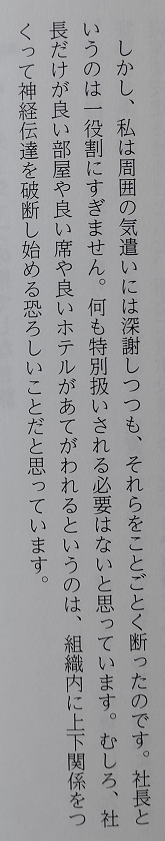 しかし、私は周囲の気遣いには深謝しつつも、それらをことごとく断ったのです。社長と
いうのは一役割にすぎません。何も特別扱いされる必要はないと思っています。むしろ、社
長だけが良い部屋や良い席や良いホテルがあてがわれるというのは、組織内に上下関係をつ
くって神経伝達を破断し始める恐ろしいことだと思っています。